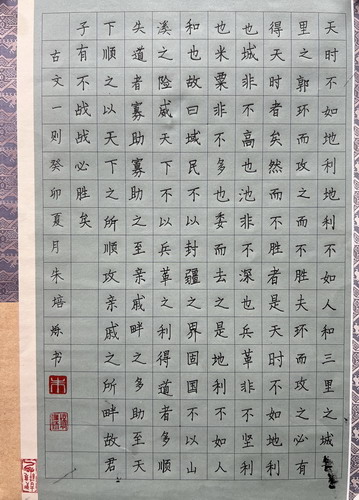 天时不如地利地利不如人和三里之城
里之郭环而攻之而不胜夫环而攻之必有
得天时者矣然而不胜者是天时不如地利
也城非不高也池非不深也兵革非不坚利
也米粟非不多也委而去之是地利不如人
和也故曰域民不以封疆之界固国不以山
溪之险威天下不以兵革之利得道者多顺
失道者寡助寡助之至亲戚畔之多助至天
下顺之以天下之所顺攻亲戚之所畔故君
子有不战战必胜矣
古文一则癸卯夏月朱培烁书
朱